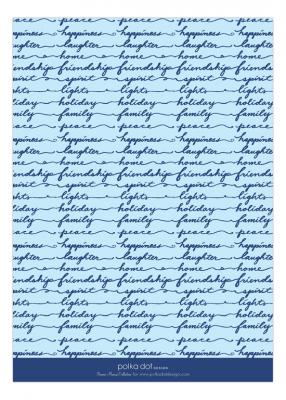 peace peace peace peace
happiness happiness happiness happiness
laughter laughter laughter laughter
home home home home
friendship friendship friendship friendship
spirit spirit spirit spirit
lights lights lights lights
holiday holiday holiday holiday
family family family family
peace peace peace peace
happiness happiness happiness happiness
laughter laughter laughter laughter
home home home home
friendship friendship friendship friendship
spirit spirit spirit spirit
lights lights lights lights
holiday holiday holiday holiday
family family family family
peace peace peace peace
happiness happiness happiness happiness
laughter laughter laughter laughter
home home home home
friendship friendship friendship friendship
spirit spirit spirit spirit
lights lights lights lights
holiday holiday holiday holiday
family family family family
peace peace peace peace
happiness happiness happiness happiness
polka dot DESIGN
Collection for www.polkadotdesign.com